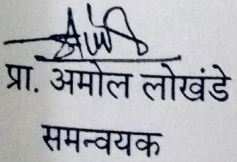 प्रा. अमोल लोखंडे
समन्वयक